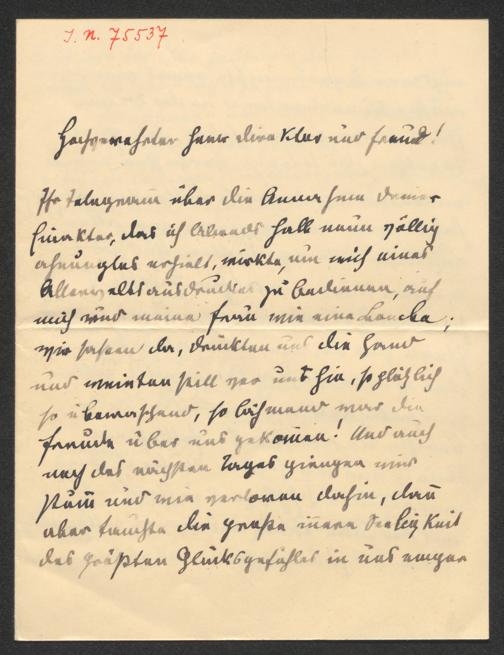 I. N. 75537
Hochverehrter Herr Direktor und Freund!
Ihr Telegramm über die Annahme deiner
Einakter, das ich Abends halb neun völlig
ahnungslos erhielt, wirkte, um mich eines
Allerweltsausdruckes zu bedienen, auf
mich und meine Frau wie eine Bombe;
wir sassen da, drückten uns die Hand
und weinten still vor uns hin, so plötzlich
so überraschend, so lähmend war die
Freude über uns gekommen! Und auch
noch des nächsten Tages giengen wir
stumm und wie verloren dahin, dann
aber tauchte die große innere Seeligkeit
des größten Glücksgefühles in uns empor